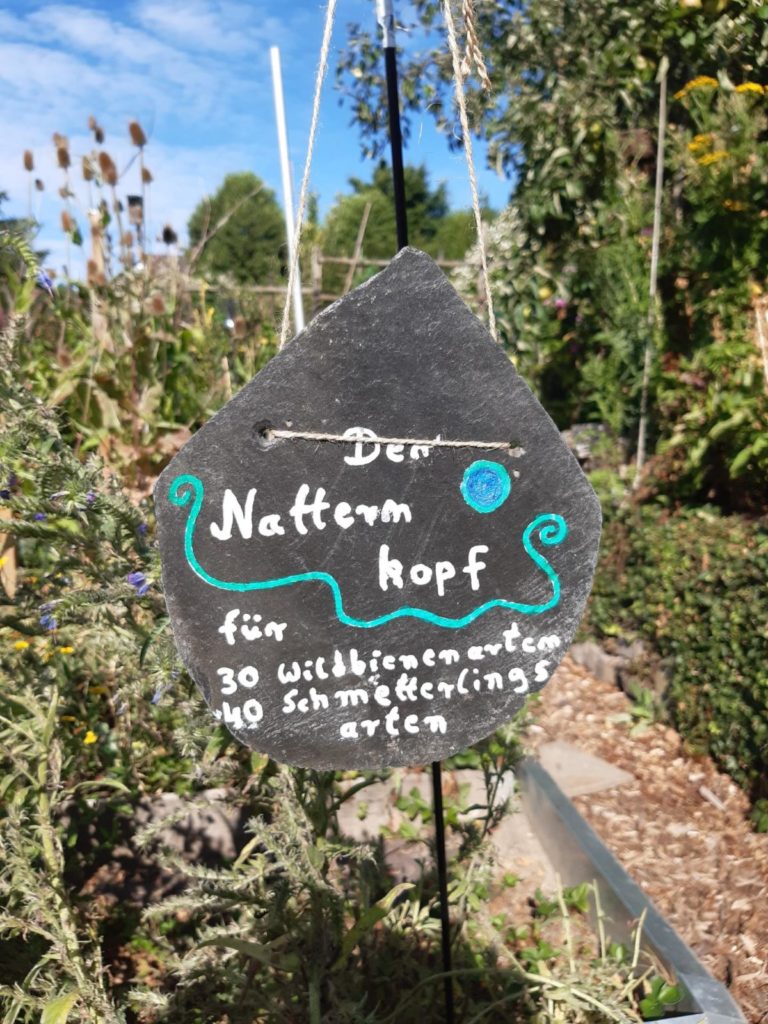 Der
Natternkopf
für
30 Wildbienenarten
40 Schmetterlings
arten